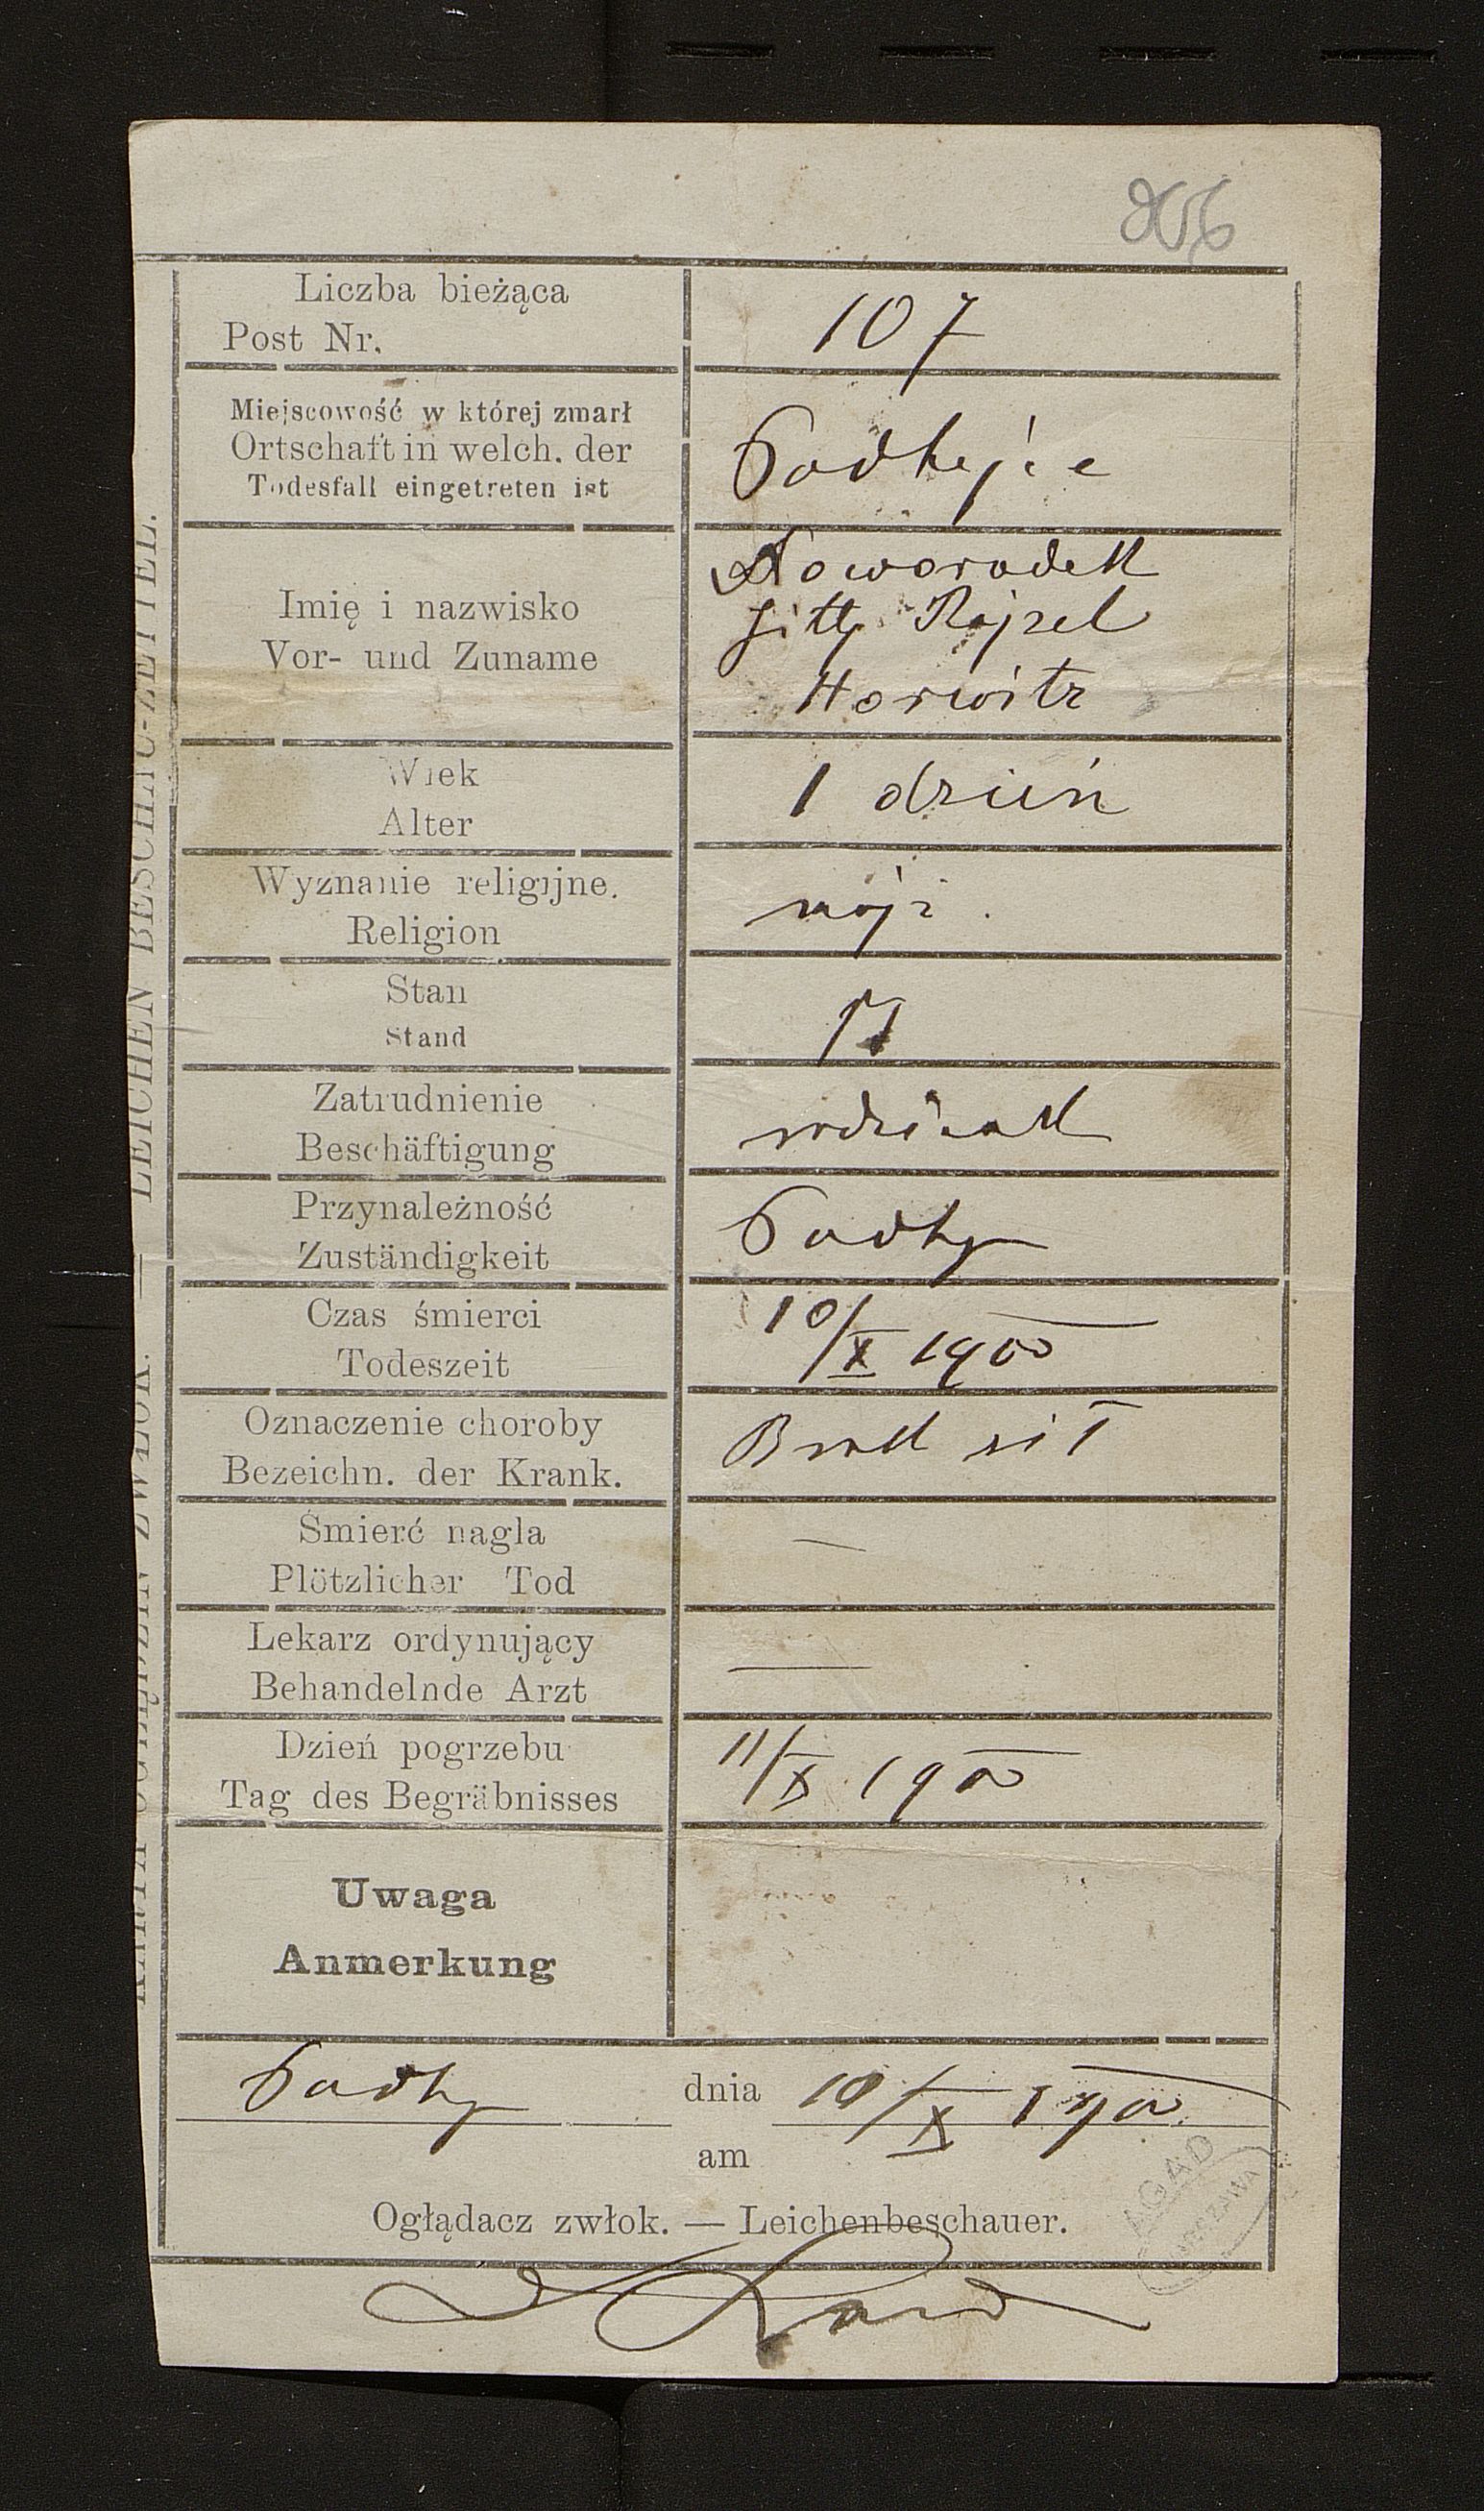 206
Liczba bieżąca
Post Nr.
107
Miejscowość w której zmarł
Ortschaft in welch. der
Todesfall eingetreten ist
Podhajce
Noworodek
Gitty Rojzel
Horwitz
Imię i nazwisko
Vor- und Zuname
Wiek
Alter
1 dzień
Wyznanie religijne.
Religion
mojż.
Stan
Stand
Zatrudnienie
Beschäftigung
Przynależność
Zuständigkeit
Podhj
Czas śmierci
Todeszeit
10/X 1900
Oznaczenie choroby
Bezeichn. der Krank.
Brak sił
Śmierć nagla
Plötzlicher Tod
—
Lekarz ordynujący
Behandelnde Arzt
—
Dzień pogrzebu
Tag des Begräbnisses
11/X 1900
Uwaga
Anmerkung
Podhj dnia 10/X 1900
am
Oglądacz zwłok. — Leichenbeschauer.
KARTA OGLĘDZIN ZWŁOK. — LEICHEN BESCHAU-ZETTEL.
AGAD
WARSZAWA